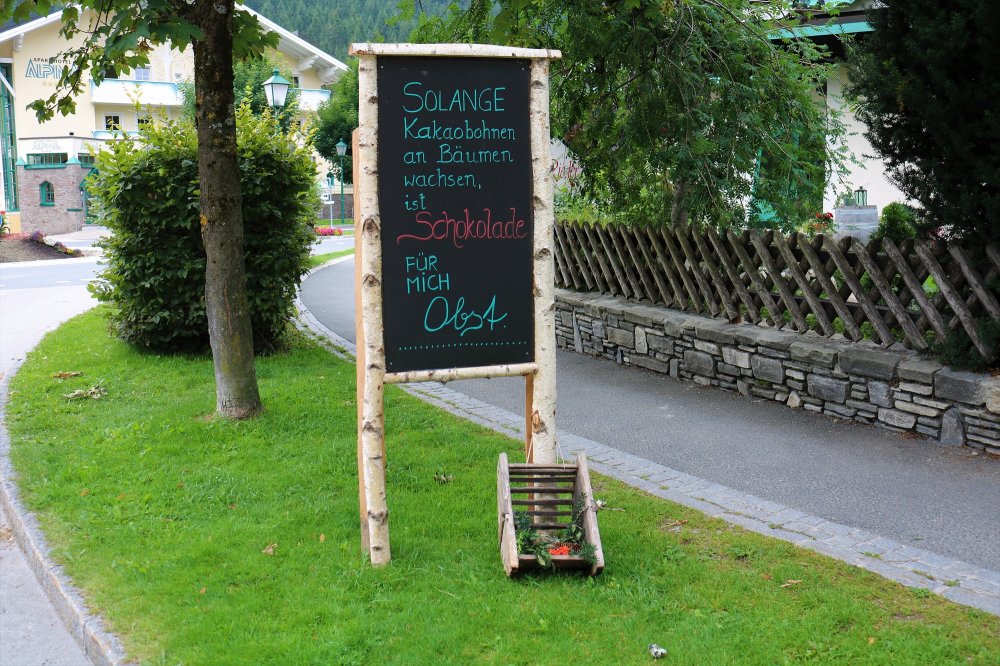 APARTHOTEL
ALPIN
SOLANGE
Kakaobohnen
an Bäumen
wachsen,
ist
Schokolade
FÜR
MICH
Obst.